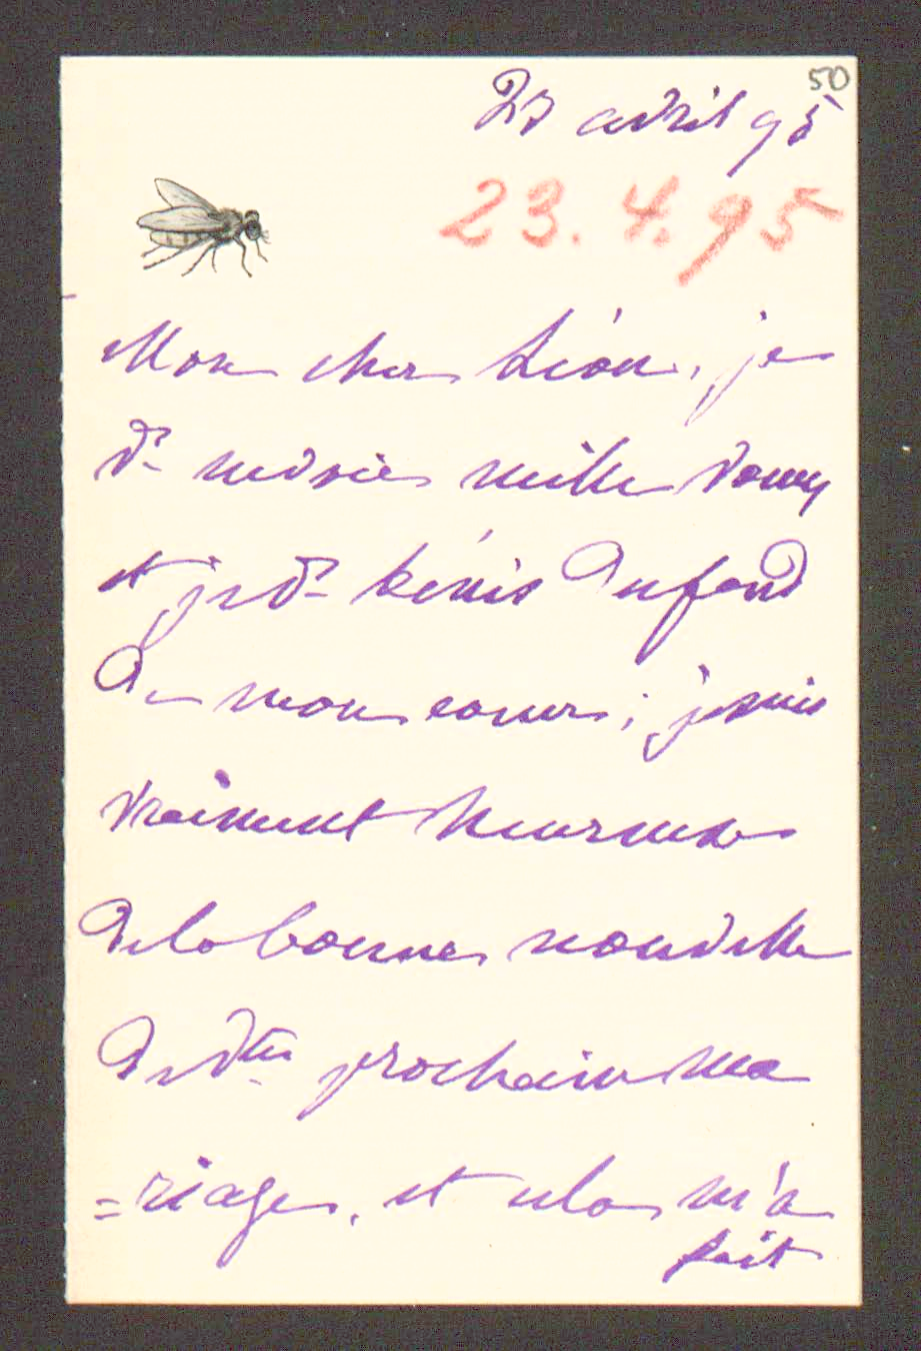 50
23 avril 95
23.4.95
Mon cher Léon, je
vs remercie mille fois
et je vs bénis du fond
de mon coeur; je suis
vraiment heureuse
de la bonne nouvelle
de vtre prochain ma
=riage, et cela m'a
fait